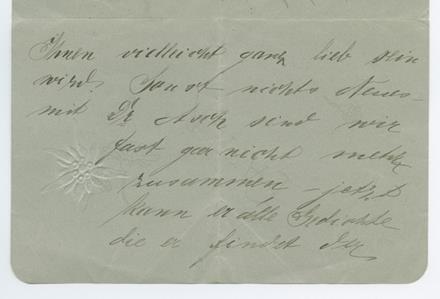 Ihnen vielleicht ganz lieb sein
wird. Sonst nichts Neues -
mit Dr Asch sind wir
fast gar nicht mehr
zusammen - jetzt
kann er alle Gedichte
die er findet